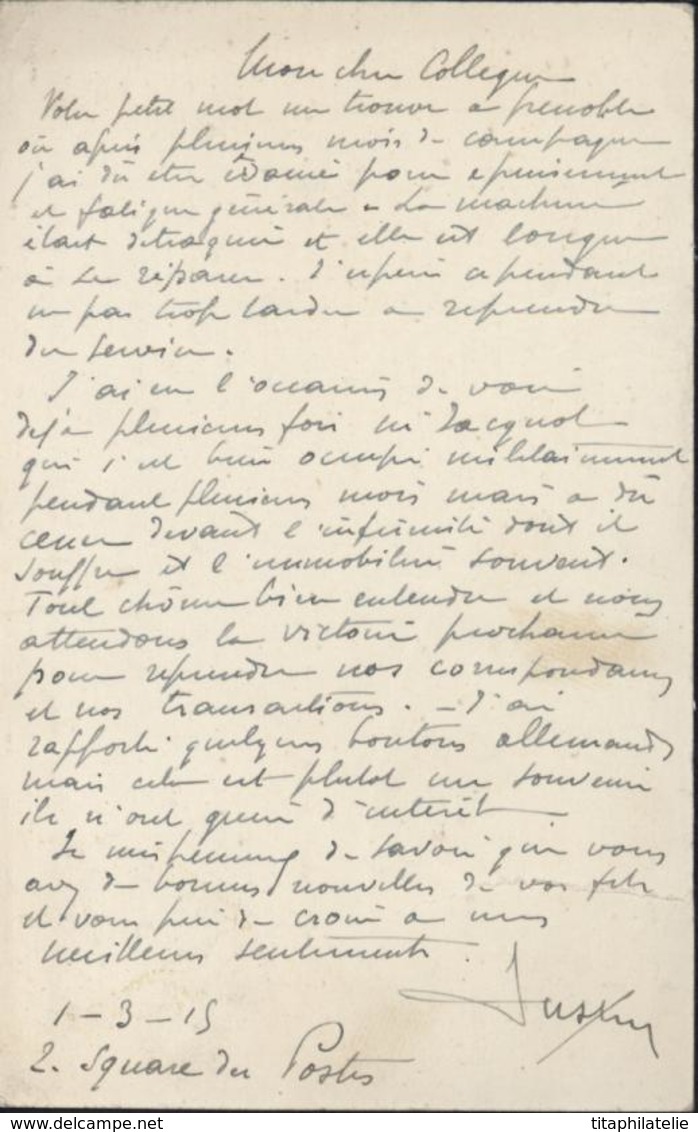 Mon cher Collègue
Votre petit mot me trouve à Grenoble
où après plusieurs mois de campagne
j'ai dû être évacué pour épuisement
et fatigue générale. La machine
était détraquée et elle est longue
à se réparer. J'espère cependant
ne pas trop tarder à reprendre
du service.
J'ai eu l'occasion de voir
déjà plusieurs fois Mr Jacquot
qui s'est bien occupé militairement
pendant plusieurs mois mais a dû
cesser devant l'infirmité dont il
souffre et l'immobilise souvent.
Tout chôme bien entendu et nous
attendons la victoire prochaine
pour reprendre nos correspondances
et nos transactions. - J'ai
rapporté quelques boutons allemands
mais cela est plutôt un souvenir
ils n'ont guère d'intérêt
Je suis heureux de savoir que vous
avez de bonnes nouvelles de vos fils
et vous prie de croire à mes
meilleurs sentiments.
1-3-15
2. Square des Postes
titaphilatelie